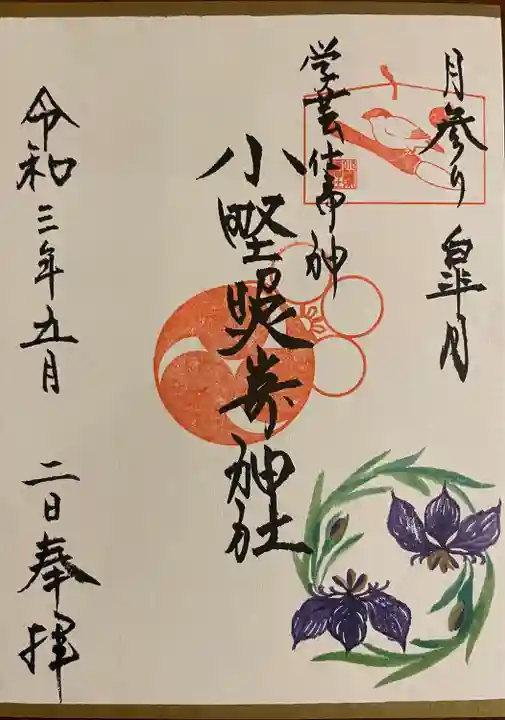 月参り 皐月
学芸仕事神
小野照崎神社
令和三年五月 二日 奉拝